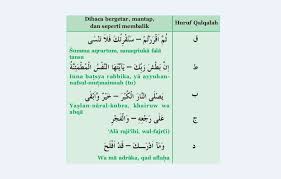 Dibaca bergetar, mantap,
dan seperti membalik
Huruf Qalqalah
ثُمَّ أَقْرَرْتُمْ – سَنُقْرِئُكَ فَلَا تَنْسَى
ق
Summa aqrartum, sanuqriukâ falâ
tansâ
إِنَّ بَطْشَ رَبِّكَ – يَاأَيَّتُهَا النَّفْسُ الْمُطْمَئِنَّةُ
ط
Inna batsya rabbika, yâ ayyuhan-
nafsul-mutmainnah(tu)
يَصْلَى النَّارَ الْكُبْرَى – خَيْرٌ وَأَبْقَى
ب
Yaşlan-nâral-kubra, khairuw wa
abqâ
عَلَى رَجْعِهِ – وَالْفَجْرِ
ج
'Alâ raji'ihi, wal-fajr(i)
وَمَا أَدْرَىكَ – قَدْ أَفْلَحَ
د
Wa mâ adrâka, qad aflaha